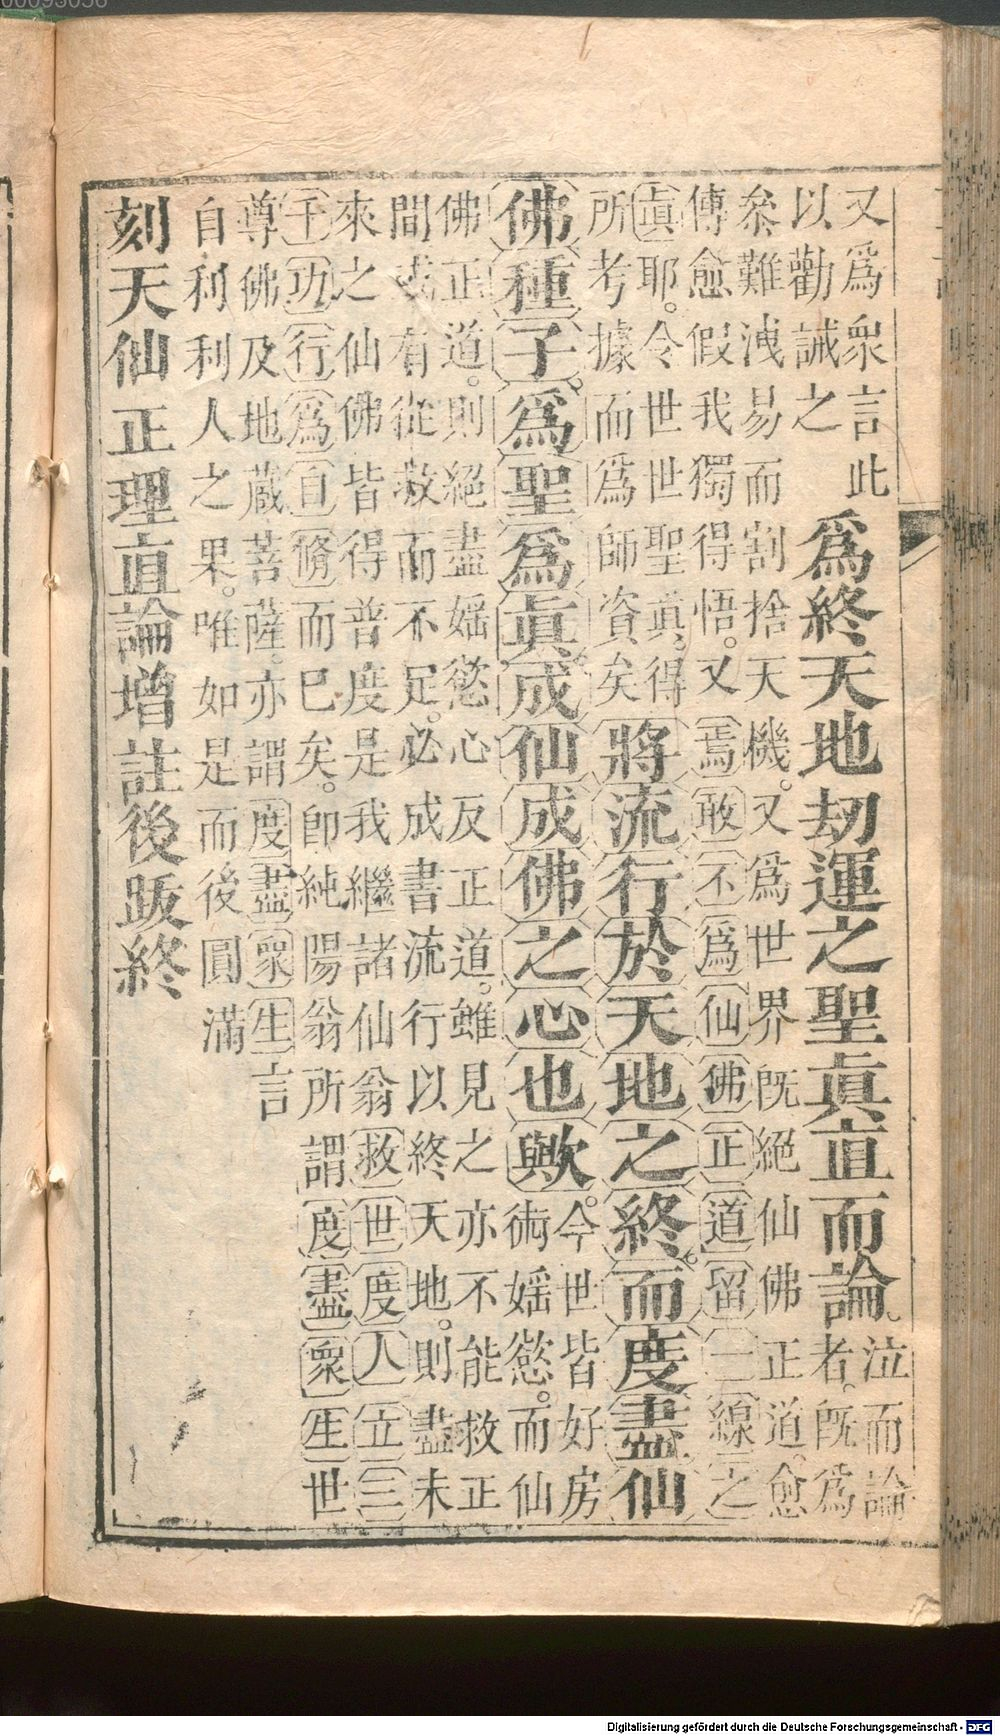 又爲衆言此
以勸誡之
爲終天地劫運之聖眞直而論。
泣而論
者。既爲
叅難洩易而割捨天機。又爲世界既絕仙佛正道。愈
傳愈假我獨得悟。又焉敢不爲仙佛正道留一線之
眞耶。令世世聖眞。得
所考據而爲師資矣
將流行於天地之終。而度盡仙
佛種子。爲聖爲眞。成仙成佛之心也歟。
今世皆好房
術婬慾。而仙
佛正道。則絕盡婬慾心反正道。雖見之亦不能救正
間或有從救而不足。必成書流行以終天地。則盡未
來之仙佛皆得普度是我繼諸仙翁救世度人立三
千功行爲自脩而巳矣。卽純陽翁所謂度盡衆生世
尊佛及地蔵菩薩。亦謂度盡衆生言
自利利人之果。唯如是而後圓滿
刻天仙正理直論增註後跋終
Digitalisierung gefördert durch die Deutsche Forschungsgemeinschaft - DFG